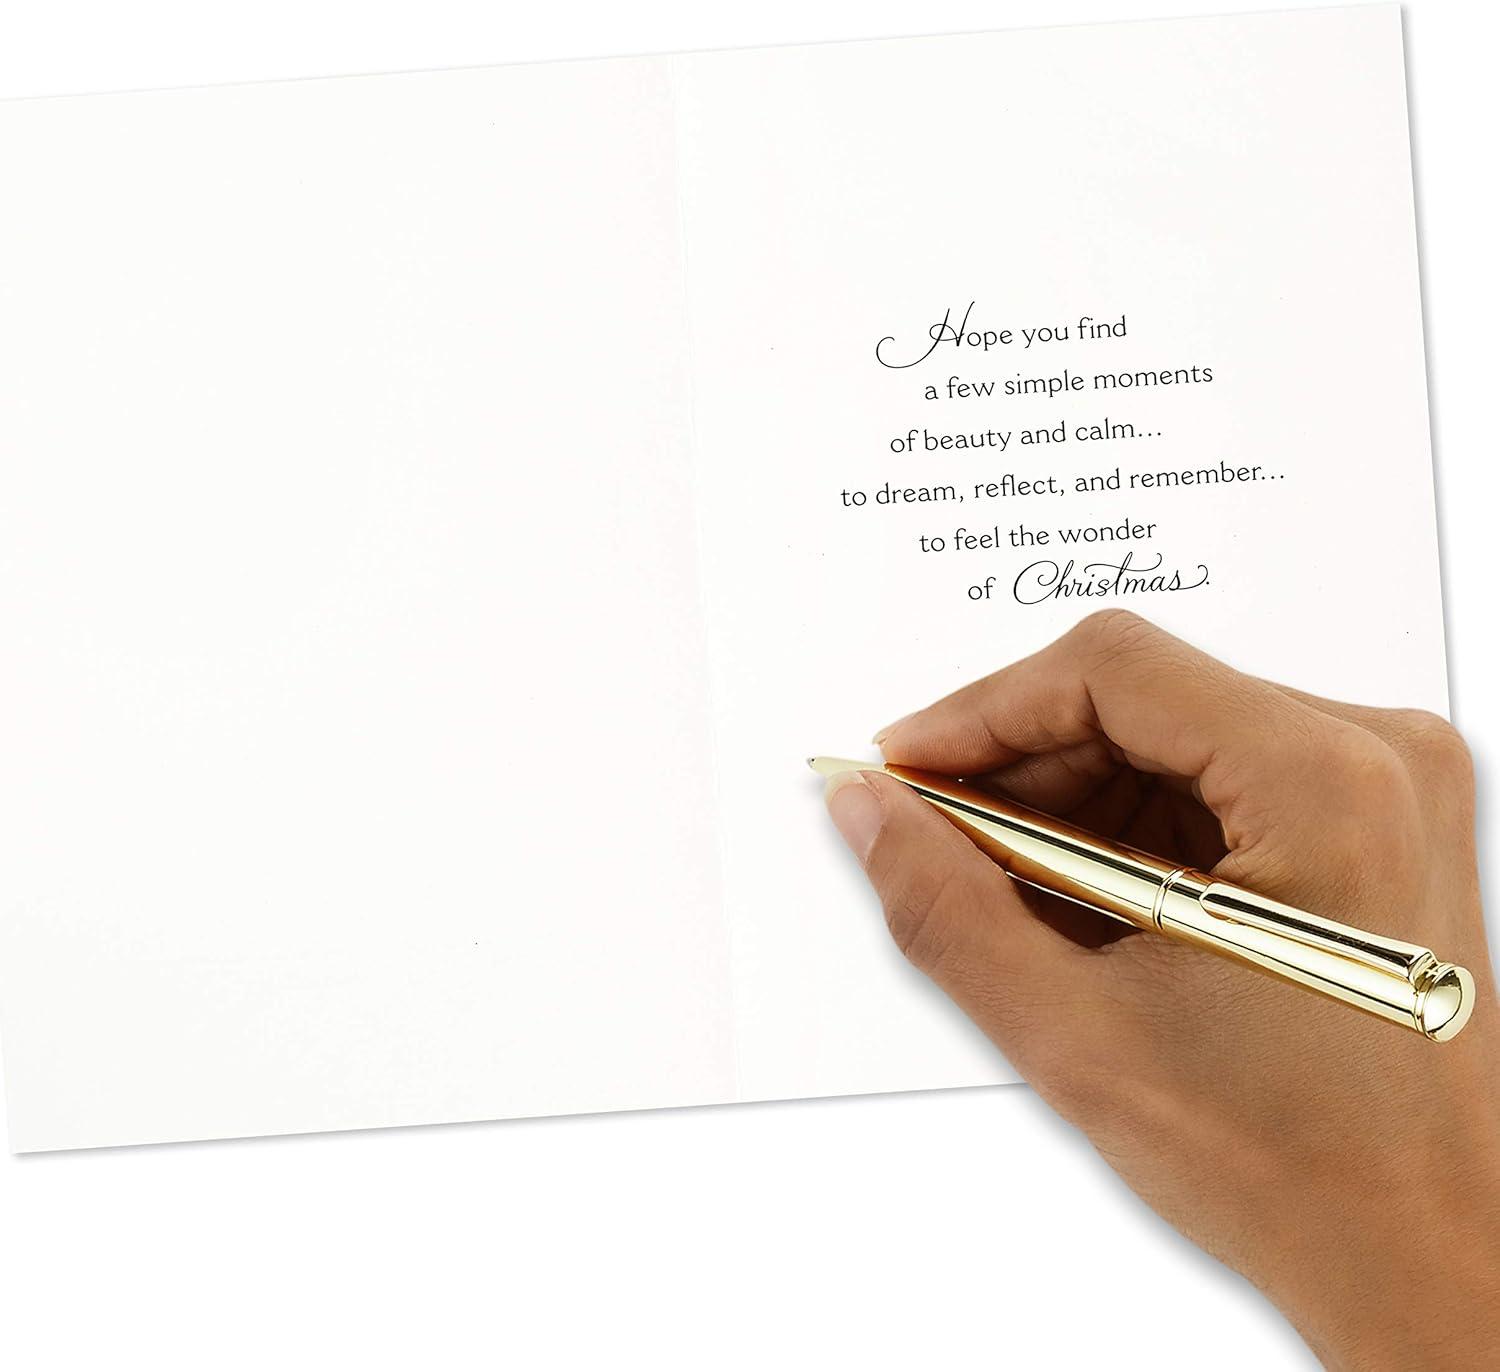 Hope you find
a few simple moments
of beauty and calm...
to dream, reflect, and remember...
to feel the wonder
of Christmas.